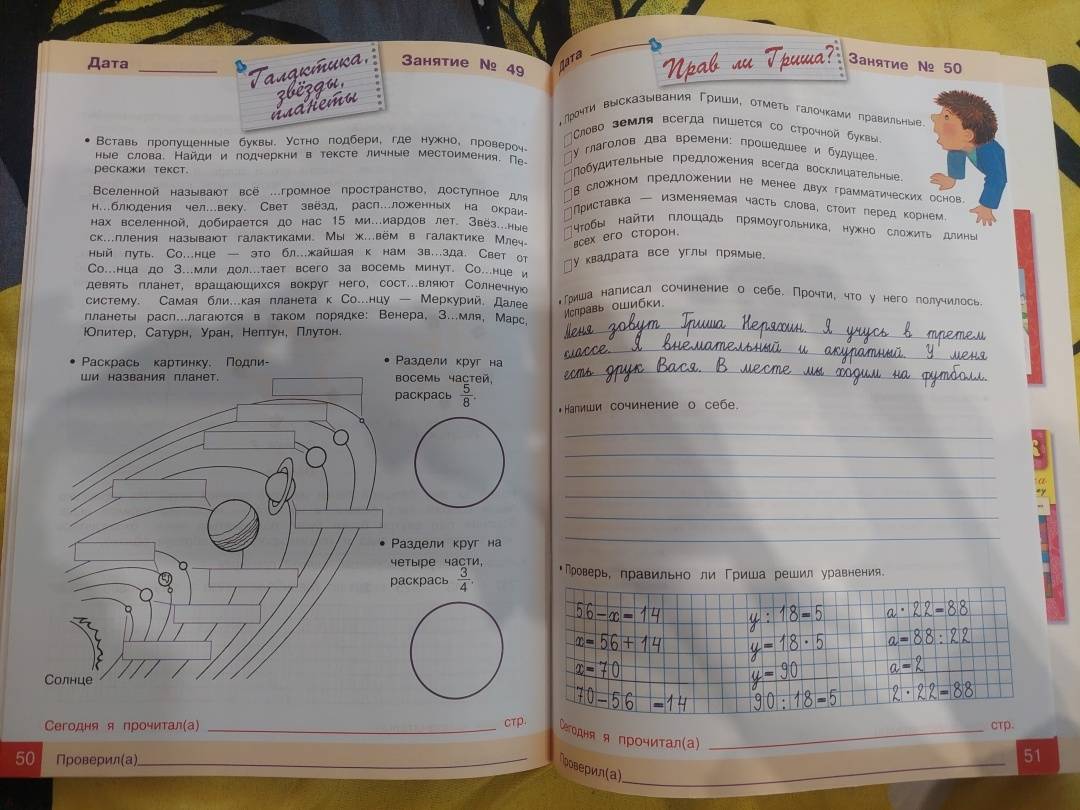 Дата
Галактика,
звёзды,
планеты
Занятие № 49
• Вставь пропущенные буквы. Устно подбери, где нужно, провероч-
ные слова. Найди и подчеркни в тексте личные местоимения. Пе-
рескажи текст.
Вселенной называют всё ...громное пространство, доступное для
н...блюдения чел...веку. Свет звёзд, расп...ложенных на окраи-
нах вселенной, добирается до нас 15 ми...иардов лет. Звёз...ные
ск...пления называют галактиками. Мы ж...вём в галактике Млеч-
ный путь. Со...нце — это бл...жайшая к нам зв...зда. Свет от
Со...нца до З...мли дол...тает всего за восемь минут. Со...нце и
девять планет, вращающихся вокруг него, сост...вляют Солнечную
систему. Самая бли...кая планета к Со...нцу — Меркурий. Далее
планеты расп...лагаются в таком порядке: Венера, З...мля, Марс,
Юпитер, Сатурн, Уран, Нептун, Плутон.
• Раскрась картинку. Подпи-
ши названия планет.
• Раздели круг на
восемь частей,
раскрась 5/8.
• Раздели круг на
четыре части,
раскрась 3/4.
Солнце
Сегодня я прочитал(а) стр.
50 Проверил(а)
Дата
Прав ли Гриша?
Занятие № 50
• Прочти высказывания Гриши, отметь галочками правильные.
Слово земля всегда пишется со строчной буквы.
У глаголов два времени: прошедшее и будущее.
Побудительные предложения всегда восклицательные.
В сложном предложении не менее двух грамматических основ.
Приставка — изменяемая часть слова, стоит перед корнем.
Чтобы найти площадь прямоугольника, нужно сложить длины
всех его сторон.
У квадрата все углы прямые.
• Гриша написал сочинение о себе. Прочти, что у него получилось.
Исправь ошибки.
Меня зовут Гриша Неряхин. Я учусь в третем
классе. Я внемательный и акуратный. У меня
есть друк Вася. В месте мы ходим на футболл.
• Напиши сочинение о себе.
• Проверь, правильно ли Гриша решил уравнения.
56-x=14 y:18=5 a·22=88
x=56+14 y=18·5 a=88:22
x=70 y=90 a=2
70-56 =14 90:18=5 2·22=88
Сегодня я прочитал(а) стр.
Проверил(а) 51